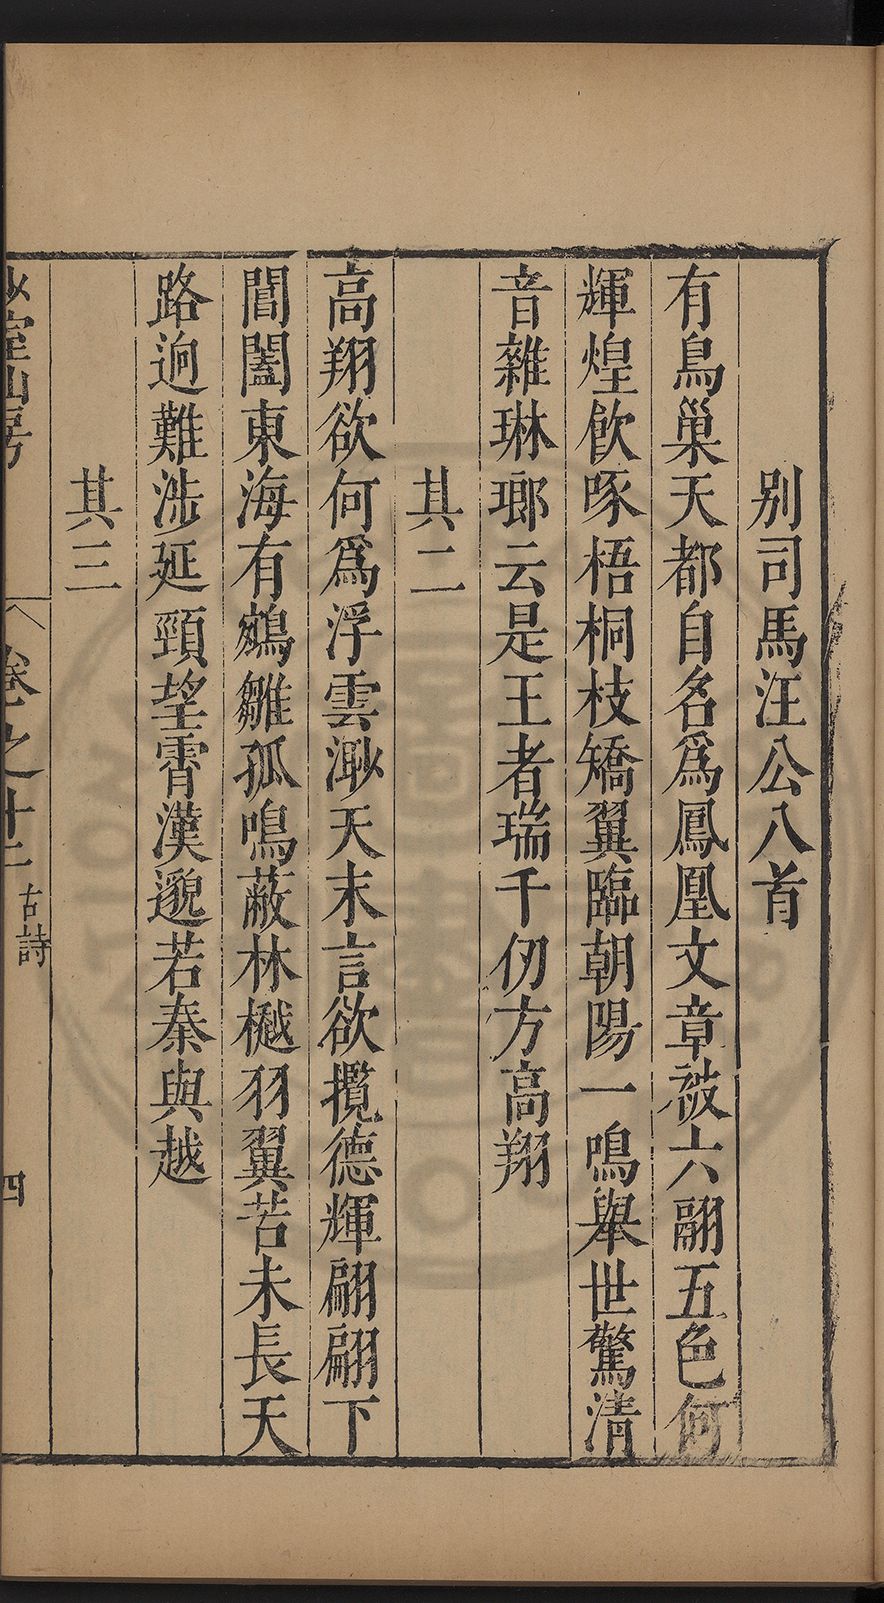 別司馬汪公八首
有鳥巢天都自名爲鳳凰文章被六翮五色何
輝煌飲啄梧桐枝矯翼臨朝陽一鳴舉世驚清
音雜琳瑯云是王者瑞千仞方高翔
其二
高翔欲何爲浮雲渺天末言欲攬德輝翩翩下
閶闔東海有鵷雛孤鳴蔽林樾羽翼苦未長天
路逈難涉延頸望霄漢邈若秦與越
其三
室山房
卷之十二
古詩
四